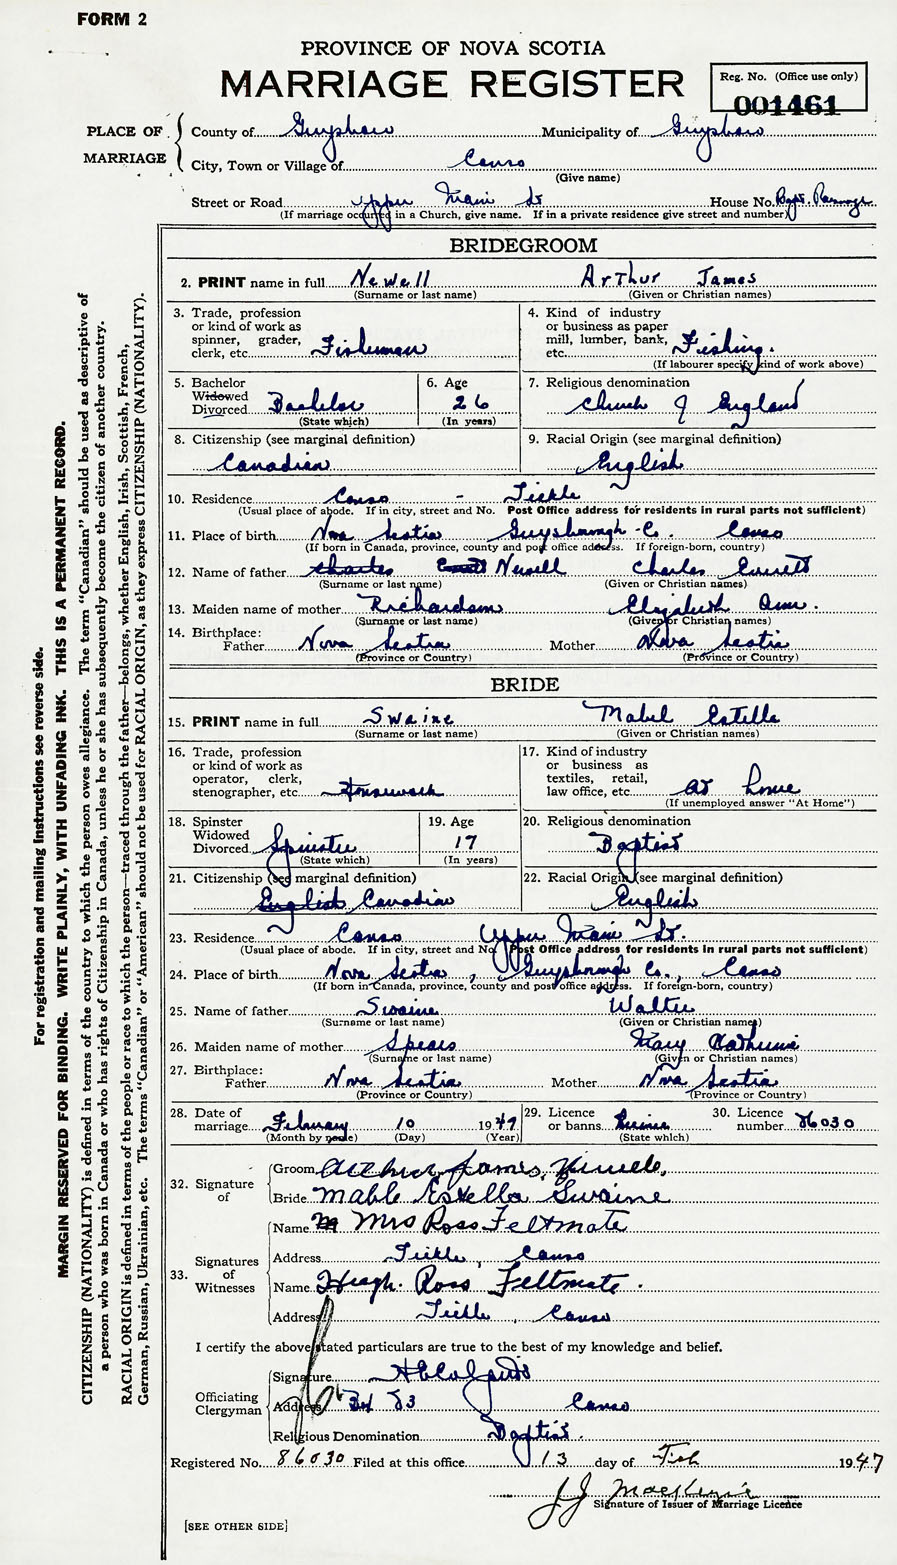 FORM 2
PROVINCE OF NOVA SCOTIA
MARRIAGE REGISTER
Reg. No. (Office use only)
001461
PLACE OF MARRIAGE
County of Guysboro Municipality of Guysboro
City, Town or Village of Canso
(Give name)
Street or Road Upper Main St House No. Bapt. Parsonage
(If marriage occurred in a Church, give name. If in a private residence give street and number)
BRIDEGROOM
2. PRINT name in full Newell Arthur James
(Surname or last name) (Given or Christian names)
3. Trade, profession or kind of work as spinner, grader, clerk, etc. Fisherman
4. Kind of industry or business as paper mill, lumber, bank, etc. Fishing.
(If labourer specify kind of work above)
5. Bachelor Widowed Divorced Bachelor
(State which)
6. Age 26
(In years)
7. Religious denomination Church of England
8. Citizenship (see marginal definition) Canadian
9. Racial Origin (see marginal definition) English
10. Residence Canso - Tickle
(Usual place of abode. If in city, street and No. Post Office address for residents in rural parts not sufficient)
11. Place of birth Nova Scotia Guysborough Co. Canso
(If born in Canada, province, county and post office address. If foreign-born, country)
12. Name of father Charles Newell Charles Everett
(Surname or last name) (Given or Christian names)
13. Maiden name of mother Richardson Elizabeth Ann.
(Surname or last name) (Given or Christian names)
14. Birthplace:
Father Nova Scotia Mother Nova Scotia
(Province or Country) (Province or Country)
BRIDE
15. PRINT name in full Swaine Mabel Estelle
(Surname or last name) (Given or Christian names)
16. Trade, profession or kind of work as operator, clerk, stenographer, etc. Housework
17. Kind of industry or business as textiles, retail, law office, etc. at home
(If unemployed answer "At Home")
18. Spinster Widowed Divorced Spinster
(State which)
19. Age 17
(In years)
20. Religious denomination Baptist
21. Citizenship (see marginal definition) English Canadian
22. Racial Origin (see marginal definition) English
23. Residence Canso Upper Main St.
(Usual place of abode. If in city, street and No. Post Office address for residents in rural parts not sufficient)
24. Place of birth Nova Scotia, Guysborough Co., Canso
(If born in Canada, province, county and post office address. If foreign-born, country)
25. Name of father Swaine Walter
(Surname or last name) (Given or Christian names)
26. Maiden name of mother Spears Mary Catherine
(Surname or last name) (Given or Christian names)
27. Birthplace:
Father Nova Scotia Mother Nova Scotia
(Province or Country) (Province or Country)
28. Date of marriage February 10 1947
(Month by name) (Day) (Year)
29. Licence or banns
(State which)
30. Licence number 86030
32. Signature of
Groom Arthur James Newell.
Bride Mable Estella Swaine
33. Signatures of Witnesses
Name Mrs Ross Feltmate
Address Tickle, Canso
Name Hugh. Ross Feltmate.
Address Tickle, Canso
I certify the above stated particulars are true to the best of my knowledge and belief.
Officiating Clergyman
Signature
Address Box 83 Canso
Religious Denomination Baptist.
Registered No. 86030 Filed at this office 13 day of Feb 1947
J.J. MacKenzie
Signature of Issuer of Marriage Licence
[SEE OTHER SIDE]
For registration and mailing instructions see reverse side.
MARGIN RESERVED FOR BINDING. WRITE PLAINLY, WITH UNFADING INK. THIS IS A PERMANENT RECORD.
CITIZENSHIP (NATIONALITY) is defined in terms of the country to which the person owes allegiance. The term "Canadian" should be used as descriptive of
a person who was born in Canada or who has rights of Citizenship in Canada, unless he or she has subsequently become the citizen of another country.
RACIAL ORIGIN is defined in terms of the people or race to which the person—traced through the father—belongs, whether English, Irish, Scottish, French,
German, Russian, Ukrainian, etc. The terms "Canadian" or "American" should not be used for RACIAL ORIGIN, as they express CITIZENSHIP (NATIONALITY).